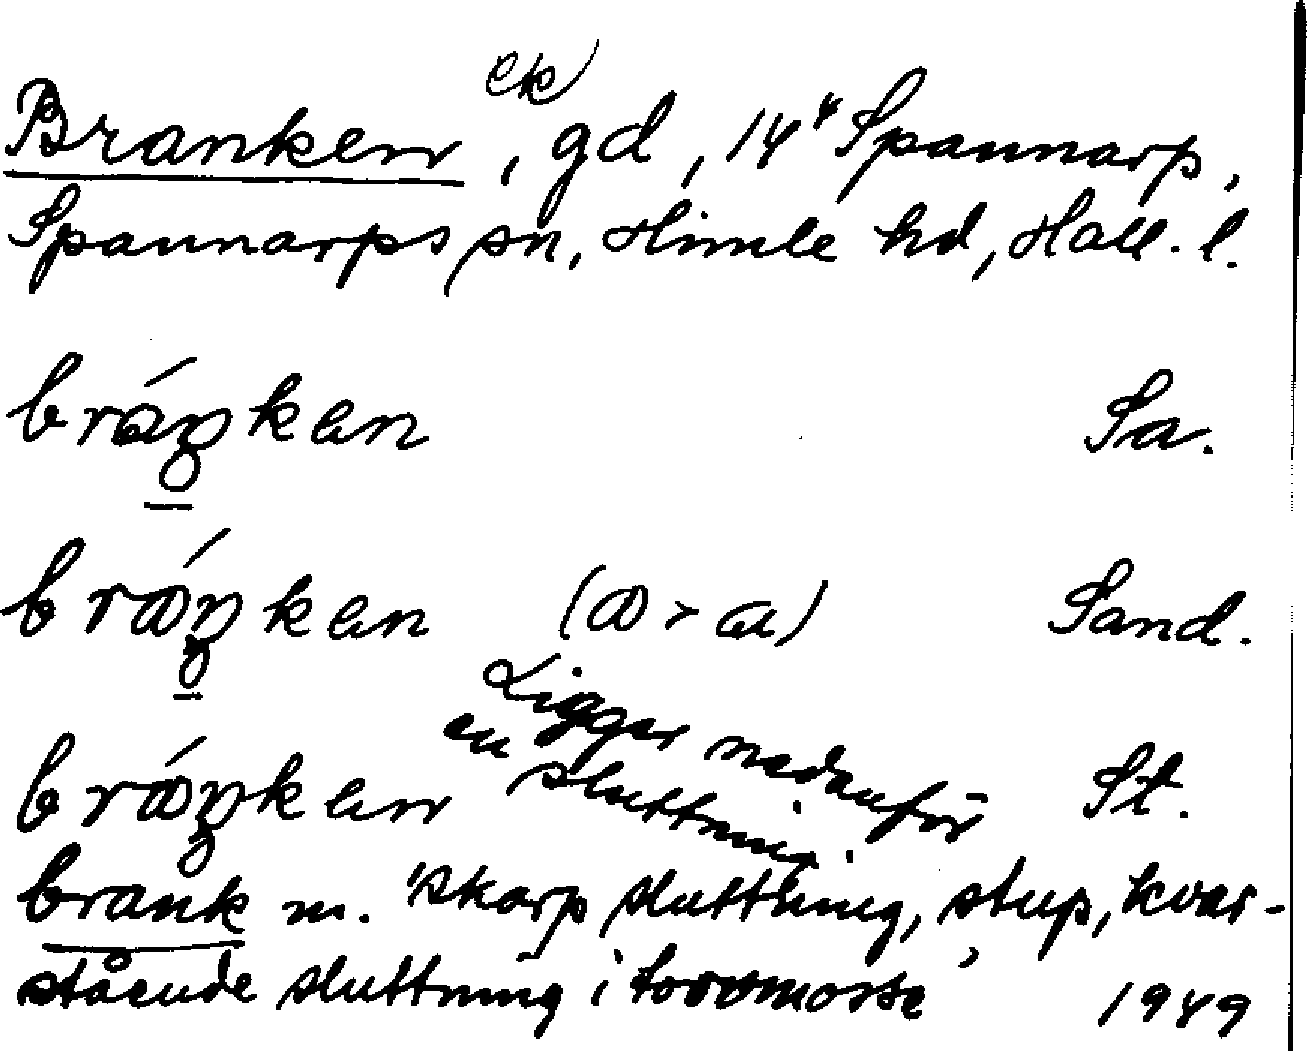 ek
Branken, gd, 14⁴ Spannarp,
Spannarps sn, Himle hd, Hall. l.
bráŋkən Sa.
bráŋkən (a > a) Sand.
bráŋkən St.
Ligger nedanför
en sluttning.
brank m. 'skarp sluttning, stup, kvar-
stående sluttning i torvmosse' 1949